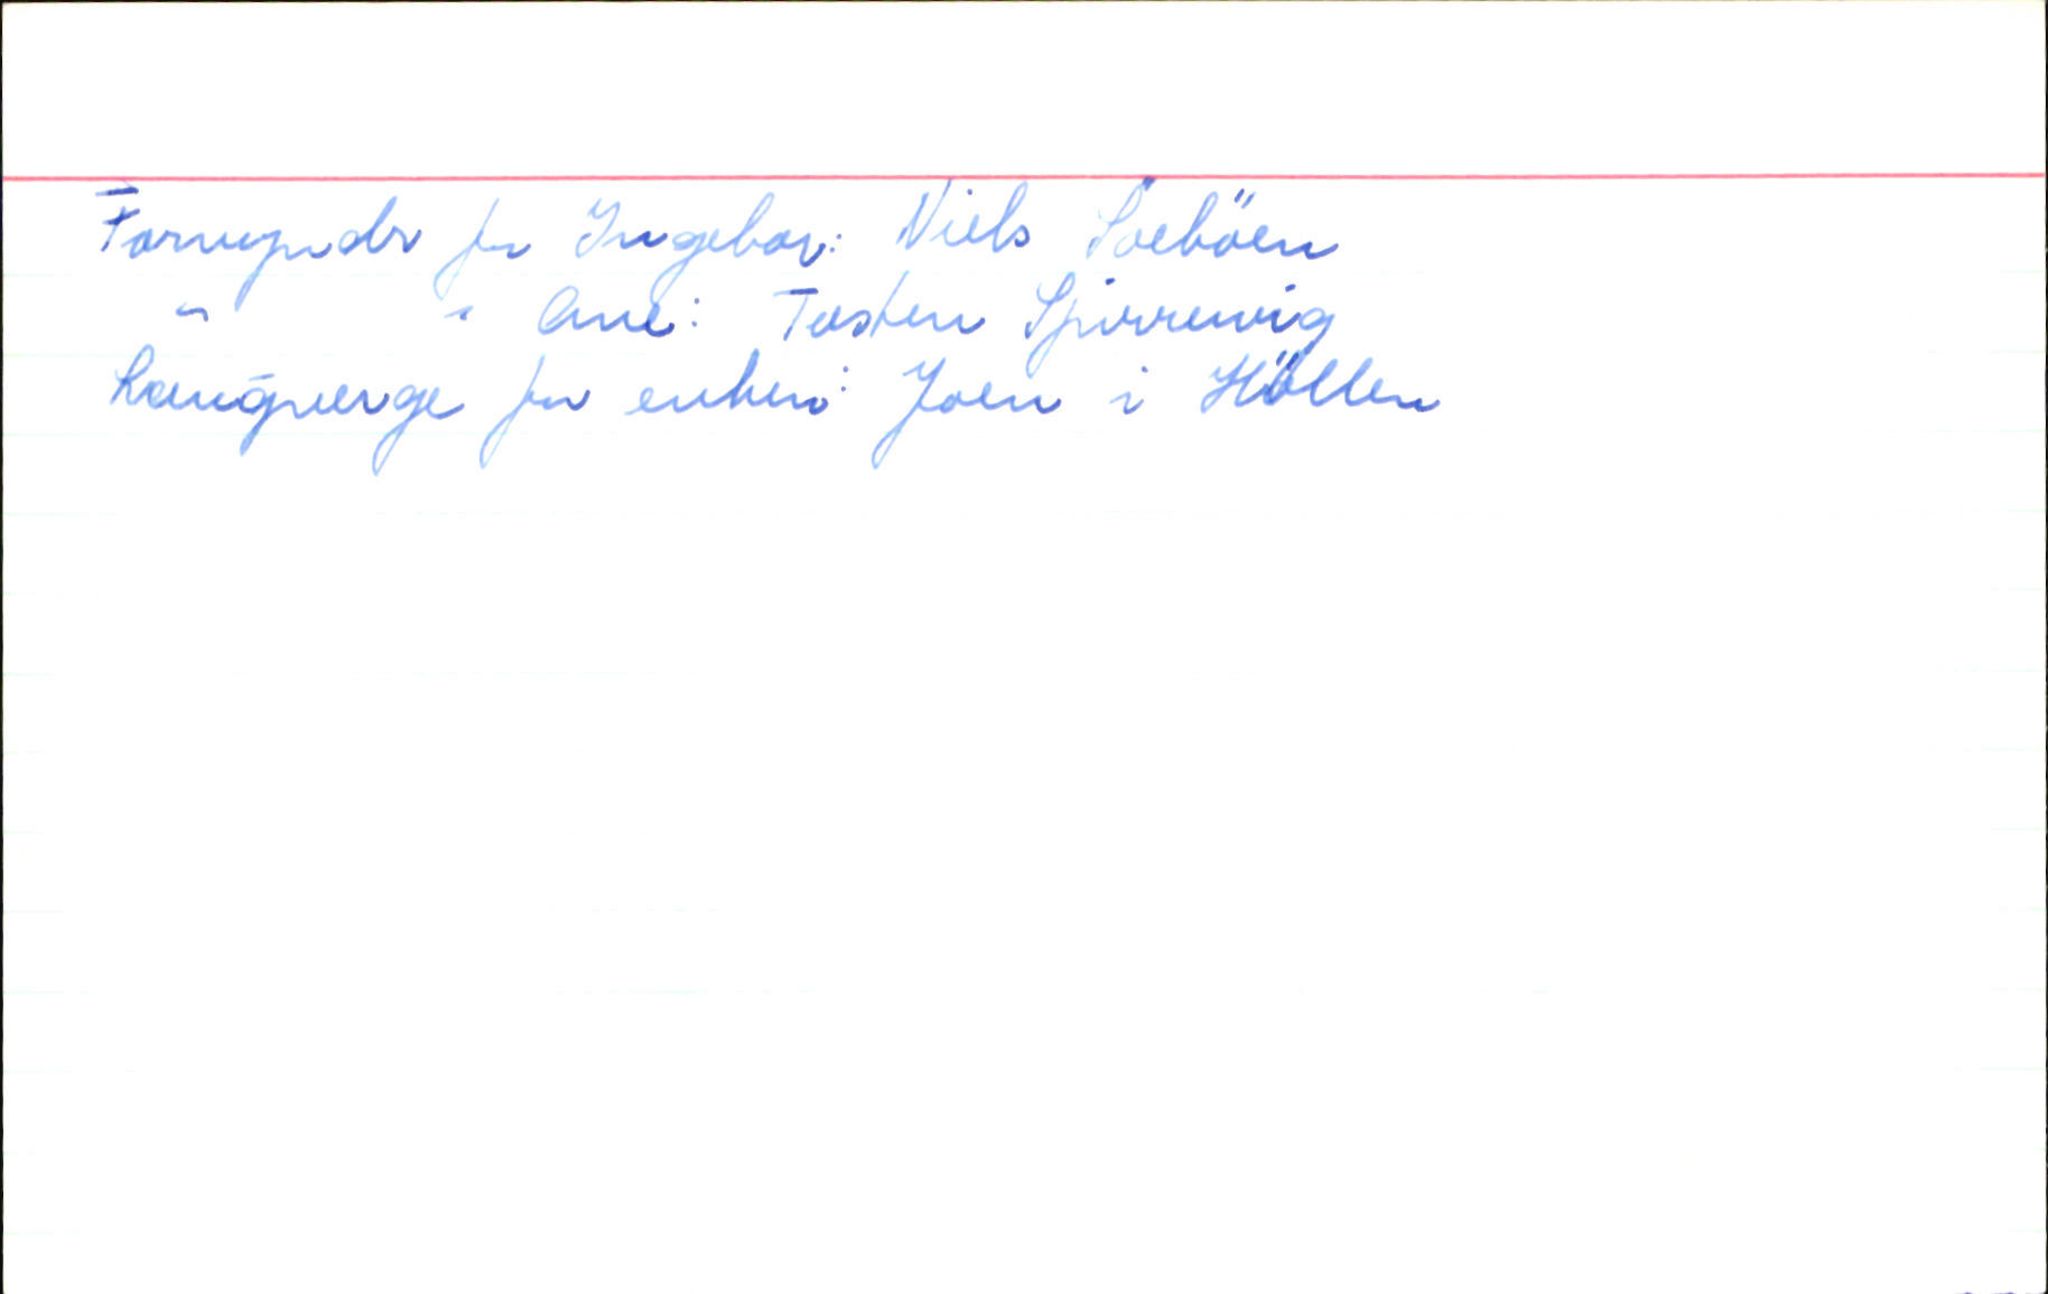 Formyndr for Ingebor: Niels Söeböen
" " Ane: Tosten Spirrewig
Laugverge for enken: Joen i Höllen